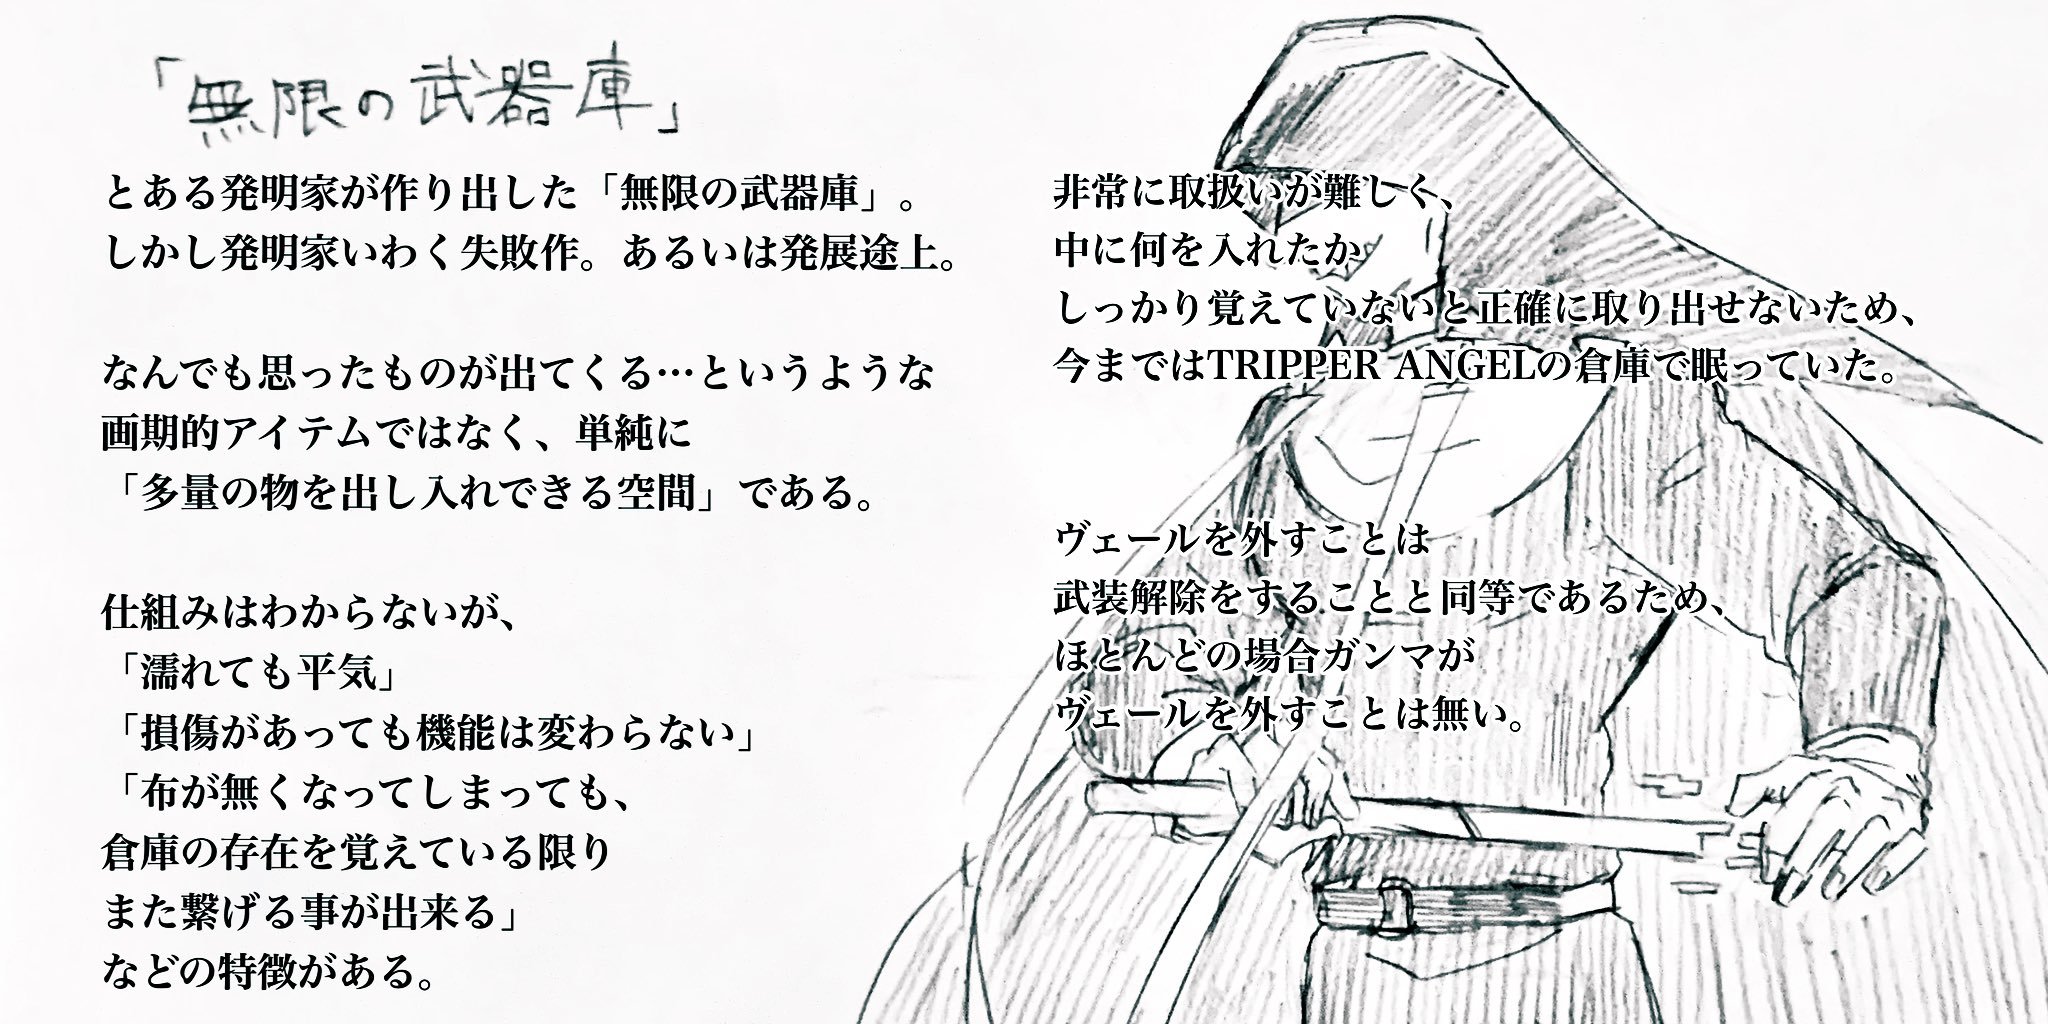 「無限の武器庫」
とある発明家が作り出した「無限の武器庫」。
しかし発明家いわく失敗作。あるいは発展途上。
なんでも思ったものが出てくる…というような
画期的アイテムではなく、単純に
「多量の物を出し入れできる空間」である。
仕組みはわからないが、
「濡れても平気」
「損傷があっても機能は変わらない」
「布が無くなってしまっても、
倉庫の存在を覚えている限り
また繋げる事が出来る」
などの特徴がある。
非常に取扱いが難しく、
中に何を入れたか
しっかり覚えていないと正確に取り出せないため、
今まではTRIPPER ANGELの倉庫で眠っていた。
ヴェールを外すことは
武装解除をすることと同等であるため、
ほとんどの場合ガンマが
ヴェールを外すことは無い。